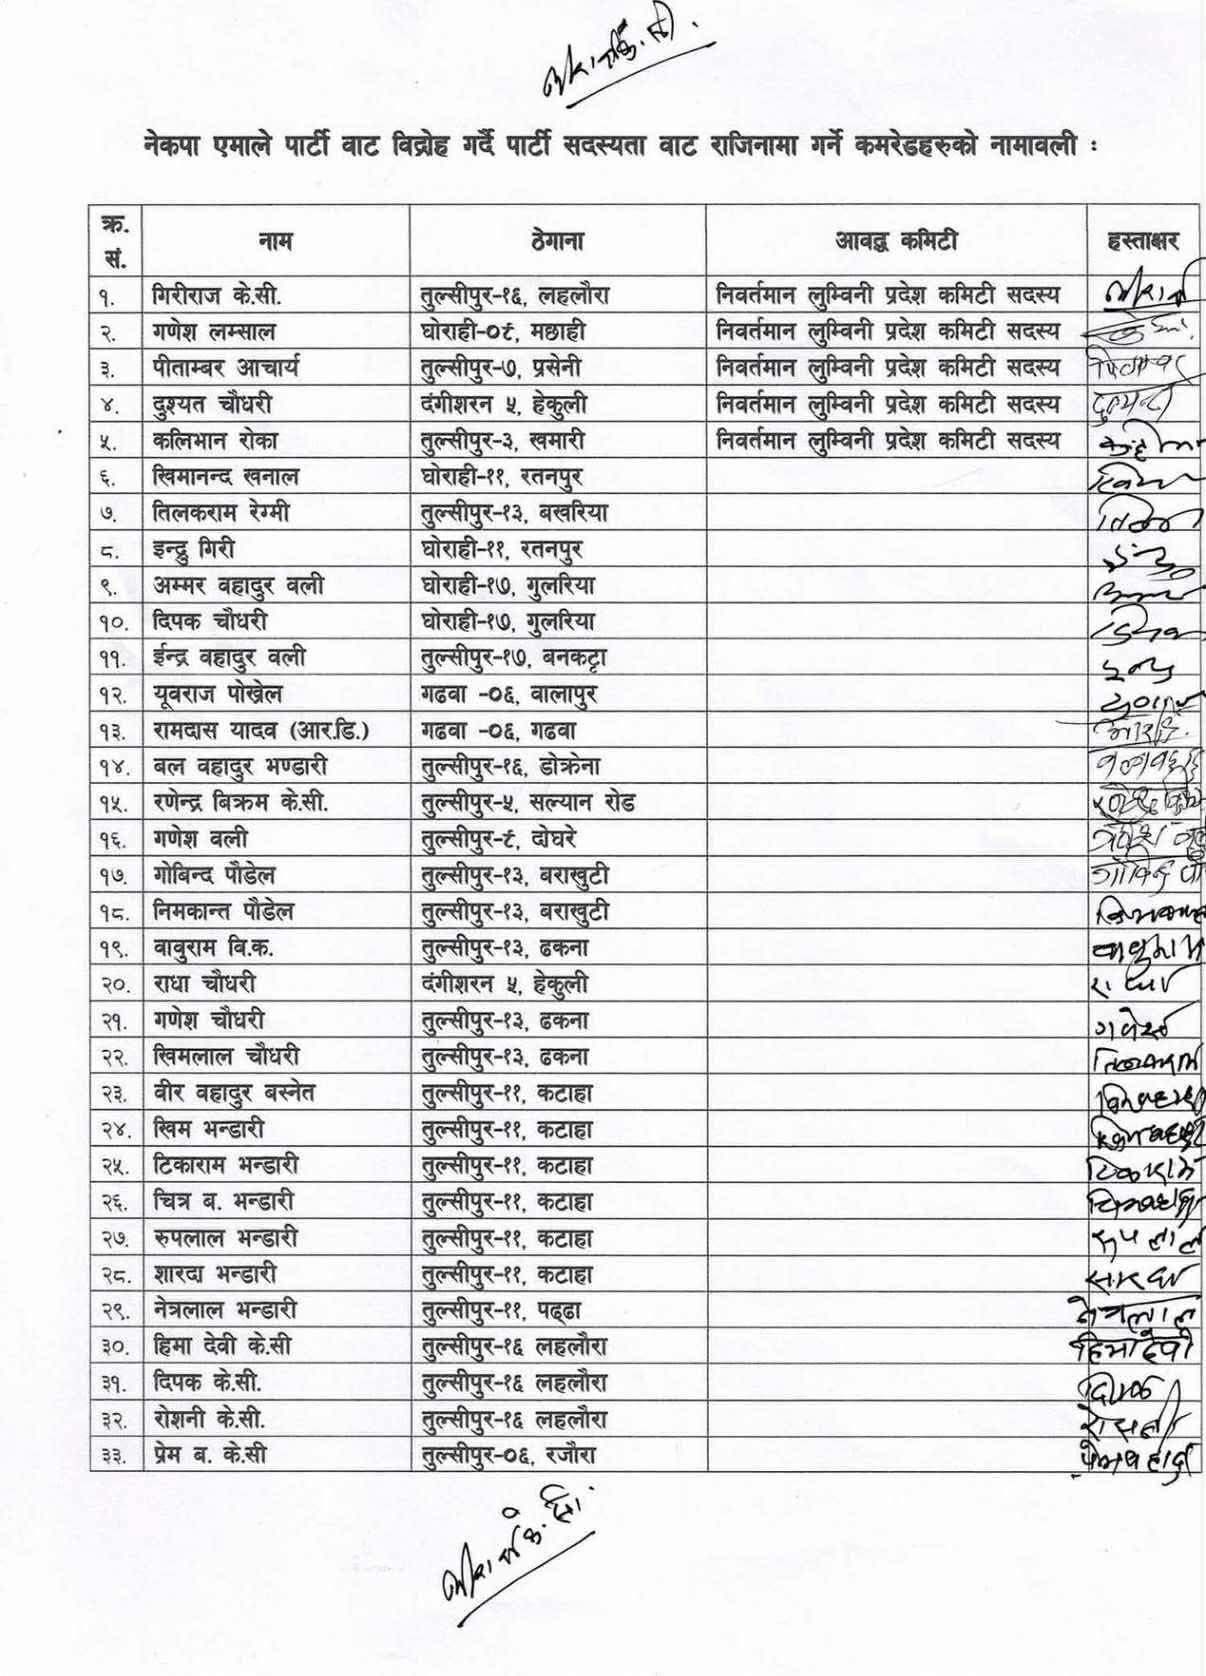 नेकपा एमाले पार्टी बाट विद्रोह गर्दै पार्टी सदस्यता बाट राजिनामा गर्ने कमरेडहरुको नामावली :
क्र. सं. नाम ठेगाना आवद्ध कमिटी हस्ताक्षर
१. गिरीराज के.सी. तुल्सीपुर-१६, लहलौरा निवर्तमान लुम्विनी प्रदेश कमिटी सदस्य
२. गणेश लम्साल घोराही-०९, मछाही निवर्तमान लुम्विनी प्रदेश कमिटी सदस्य
३. पीताम्बर आचार्य तुल्सीपुर-७, प्रसेनी निवर्तमान लुम्विनी प्रदेश कमिटी सदस्य
४. दुश्यत चौधरी दंगीशरन ५, हेकुली निवर्तमान लुम्विनी प्रदेश कमिटी सदस्य
५. कलिभान रोका तुल्सीपुर-३, खमारी निवर्तमान लुम्विनी प्रदेश कमिटी सदस्य
६. खिमानन्द खनाल घोराही-११, रतनपुर
७. तिलकराम रेग्मी तुल्सीपुर-१३, बखरिया
८. इन्द्रु गिरी घोराही-११, रतनपुर
९. अम्मर वहादुर वली घोराही-१७, गुलरिया
१०. दिपक चौधरी घोराही-१७, गुलरिया
११. ईन्द्र वहादुर वली तुल्सीपुर-१७, बनकट्टा
१२. यूवराज पोख्रेल गढवा -०६, वालापुर
१३. रामदास यादव (आर.डि.) गढवा -०६, गढवा
१४. बल वहादुर भण्डारी तुल्सीपुर-१६, डोक्रेना
१५. रणेन्द्र बिक्रम के.सी. तुल्सीपुर-५, सल्यान रोड
१६. गणेश वली तुल्सीपुर-९, दोघरे
१७. गोबिन्द पौडेल तुल्सीपुर-१३, बराखुटी
१८. निमकान्त पौडेल तुल्सीपुर-१३, बराखुटी
१९. वावुराम बि.क. तुल्सीपुर-१३, ढकना
२०. राधा चौधरी दंगीशरन ५, हेकुली
२१. गणेश चौधरी तुल्सीपुर-१३, ढकना
२२. खिमलाल चौधरी तुल्सीपुर-१३, ढकना
२३. वीर वहादुर बस्नेत तुल्सीपुर-११, कटाहा
२४. खिम भन्डारी तुल्सीपुर-११, कटाहा
२५. टिकाराम भन्डारी तुल्सीपुर-११, कटाहा
२६. चित्र ब. भन्डारी तुल्सीपुर-११, कटाहा
२७. रुपलाल भन्डारी तुल्सीपुर-११, कटाहा रुपलाल
२८. शारदा भन्डारी तुल्सीपुर-११, कटाहा
२९. नेत्रलाल भन्डारी तुल्सीपुर-११, पढ्ढा नेत्रलाल
३०. हिमा देवी के.सी तुल्सीपुर-१६ लहलौरा हिमादेवी
३१. दिपक के.सी. तुल्सीपुर-१६ लहलौरा
३२. रोशनी के.सी. तुल्सीपुर-१६ लहलौरा
३३. प्रेम ब. के.सी तुल्सीपुर-०६, रजौरा